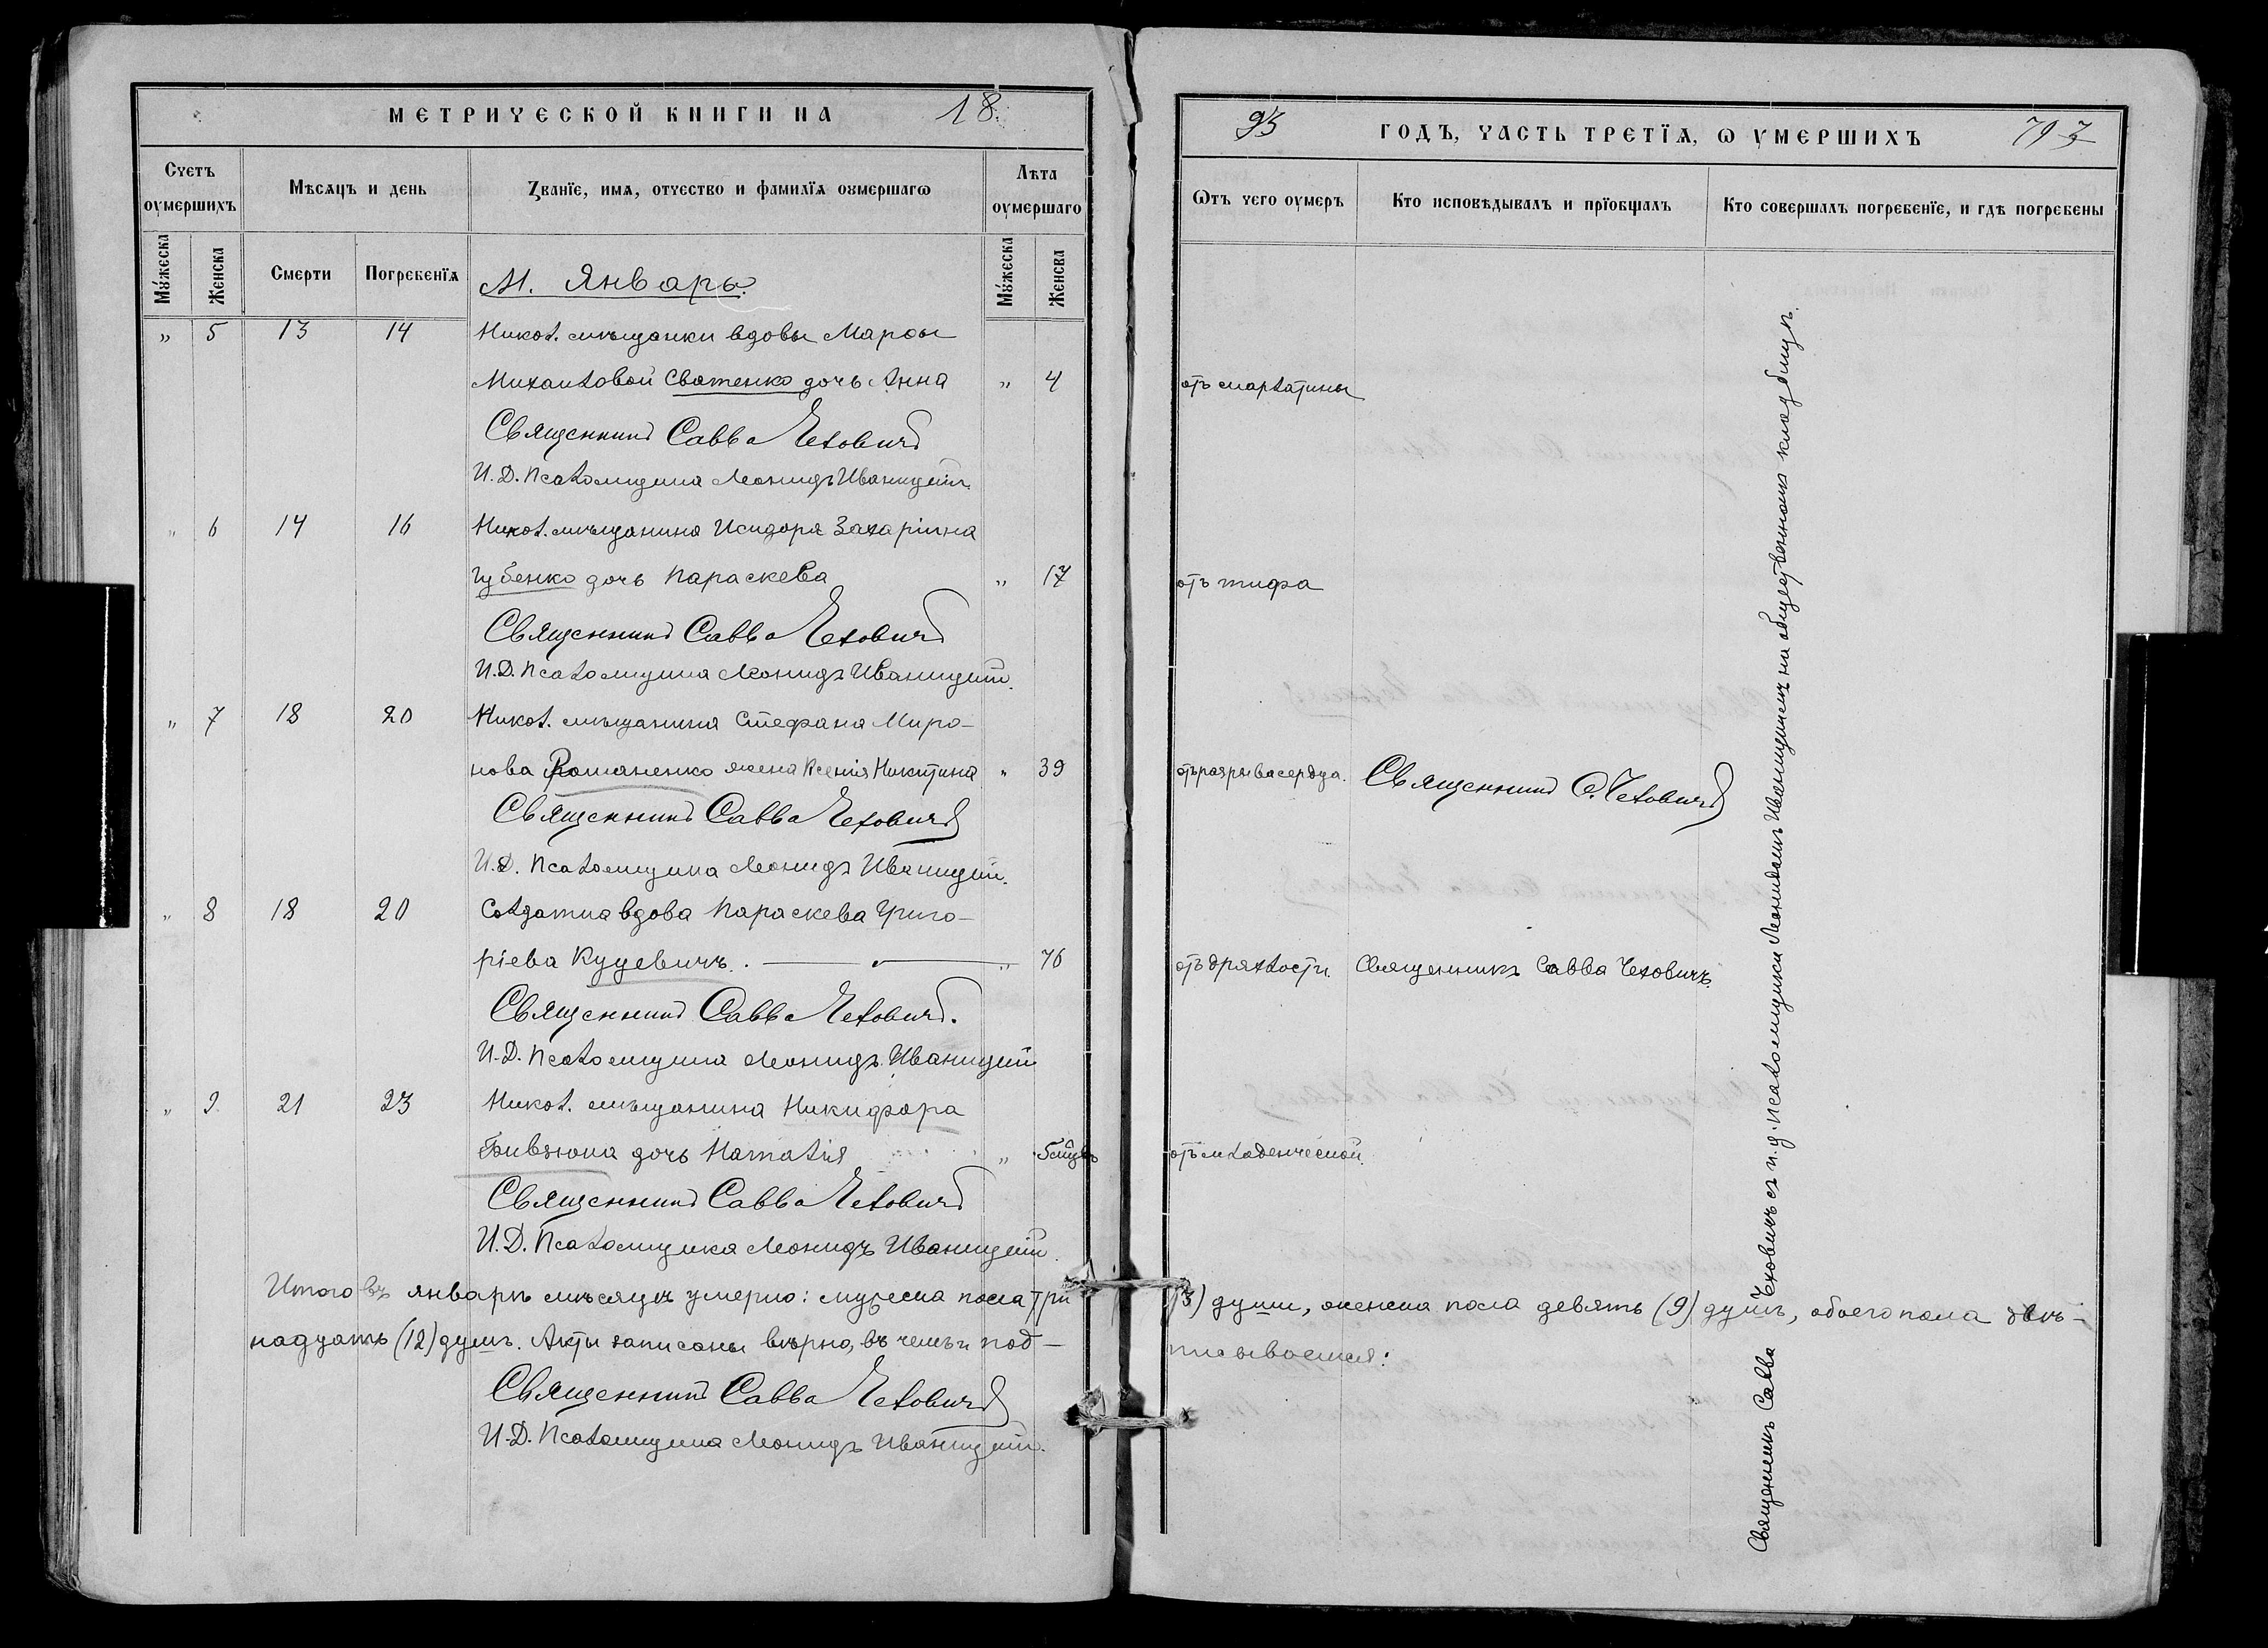 МЕТРИЧЕСКОЙ КНИГИ НА 18
Счетъ оумершихъ
Мѣсяцъ и день
Званїе, имя, отчество и фамилїя оумершагѡ
Лѣта оумершаго
Мужеска
Женска
Смерти
Погребенїя
Мужеска
Женска
М. Январь.
" 5 13 14 Никол. мѣщанки вдовы Марѳы
Михаиловой Сватенко дочь Анна " 4
Священникъ Савва Чехович
И. Д. Псаломщика Леонидъ Иваницкій.
" 6 14 16 Никол. мѣщанина Исидора Захаріина
Губенко дочь Параскева " 17
Священникъ Савва Чехович
И. Д. Псаломщика Леонидъ Иваницкій.
" 7 18 20 Никол. мѣщанина Стефана Миро-
нова Романенко жена Ксенія Никитина " 39
Священникъ Савва Чехович
И. Д. Псаломщика Леонидъ Иваницкій.
" 8 18 20 Солдатка вдова Параскева Григо-
ріева Куцевичъ. " 76
Священникъ Савва Чехович.
И. Д. Псаломщика Леонидъ Иваницкій
" 9 21 23 Никол. мѣщанина Никифора
Бивзюка дочь Наталія " 5 мѣц
Священникъ Савва Чехович
И. Д. Псаломщика Леонидъ Иваницкій.
Итого въ январѣ мѣсяцѣ умерло: мужеска пола три
надцать (12) душъ. Акты записаны вѣрно, въ чемъ и под-
Священникъ Савва Чехович
И. Д. Псаломщика Леонидъ Иваницкій.
93 ГОДЪ, ЧАСТЬ ТРЕТЇЯ, Ѡ УМЕРШИХЪ
Ѿтъ чего оумеръ
Кто исповѣдывалъ и прїобщалъ
Кто совершалъ погребенїе, и гдѣ погребены
отъ скарлатины
отъ тифа
отъ разрыва сердца. Священникъ С. Чехович
отъ дряхлости. Священникъ Савва Чеховичъ.
отъ младенческой.
(3) души, женска пола девять (9) душъ, обоего пола двѣ-
писываемся:
Священникъ Савва Чеховичъ съ и. д. псаломщика Леонидомъ Иваницкимъ на общественномъ кладбищѣ.